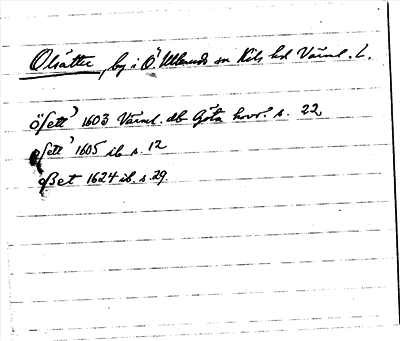 Olsätter, by i Ö Ullerud sn Kils hd Värml. L.
öſett 1603 Värml. db Göta hovr. s. 22
oſett 1605 ib. s. 12
oßet 1624 ib. s. 29.